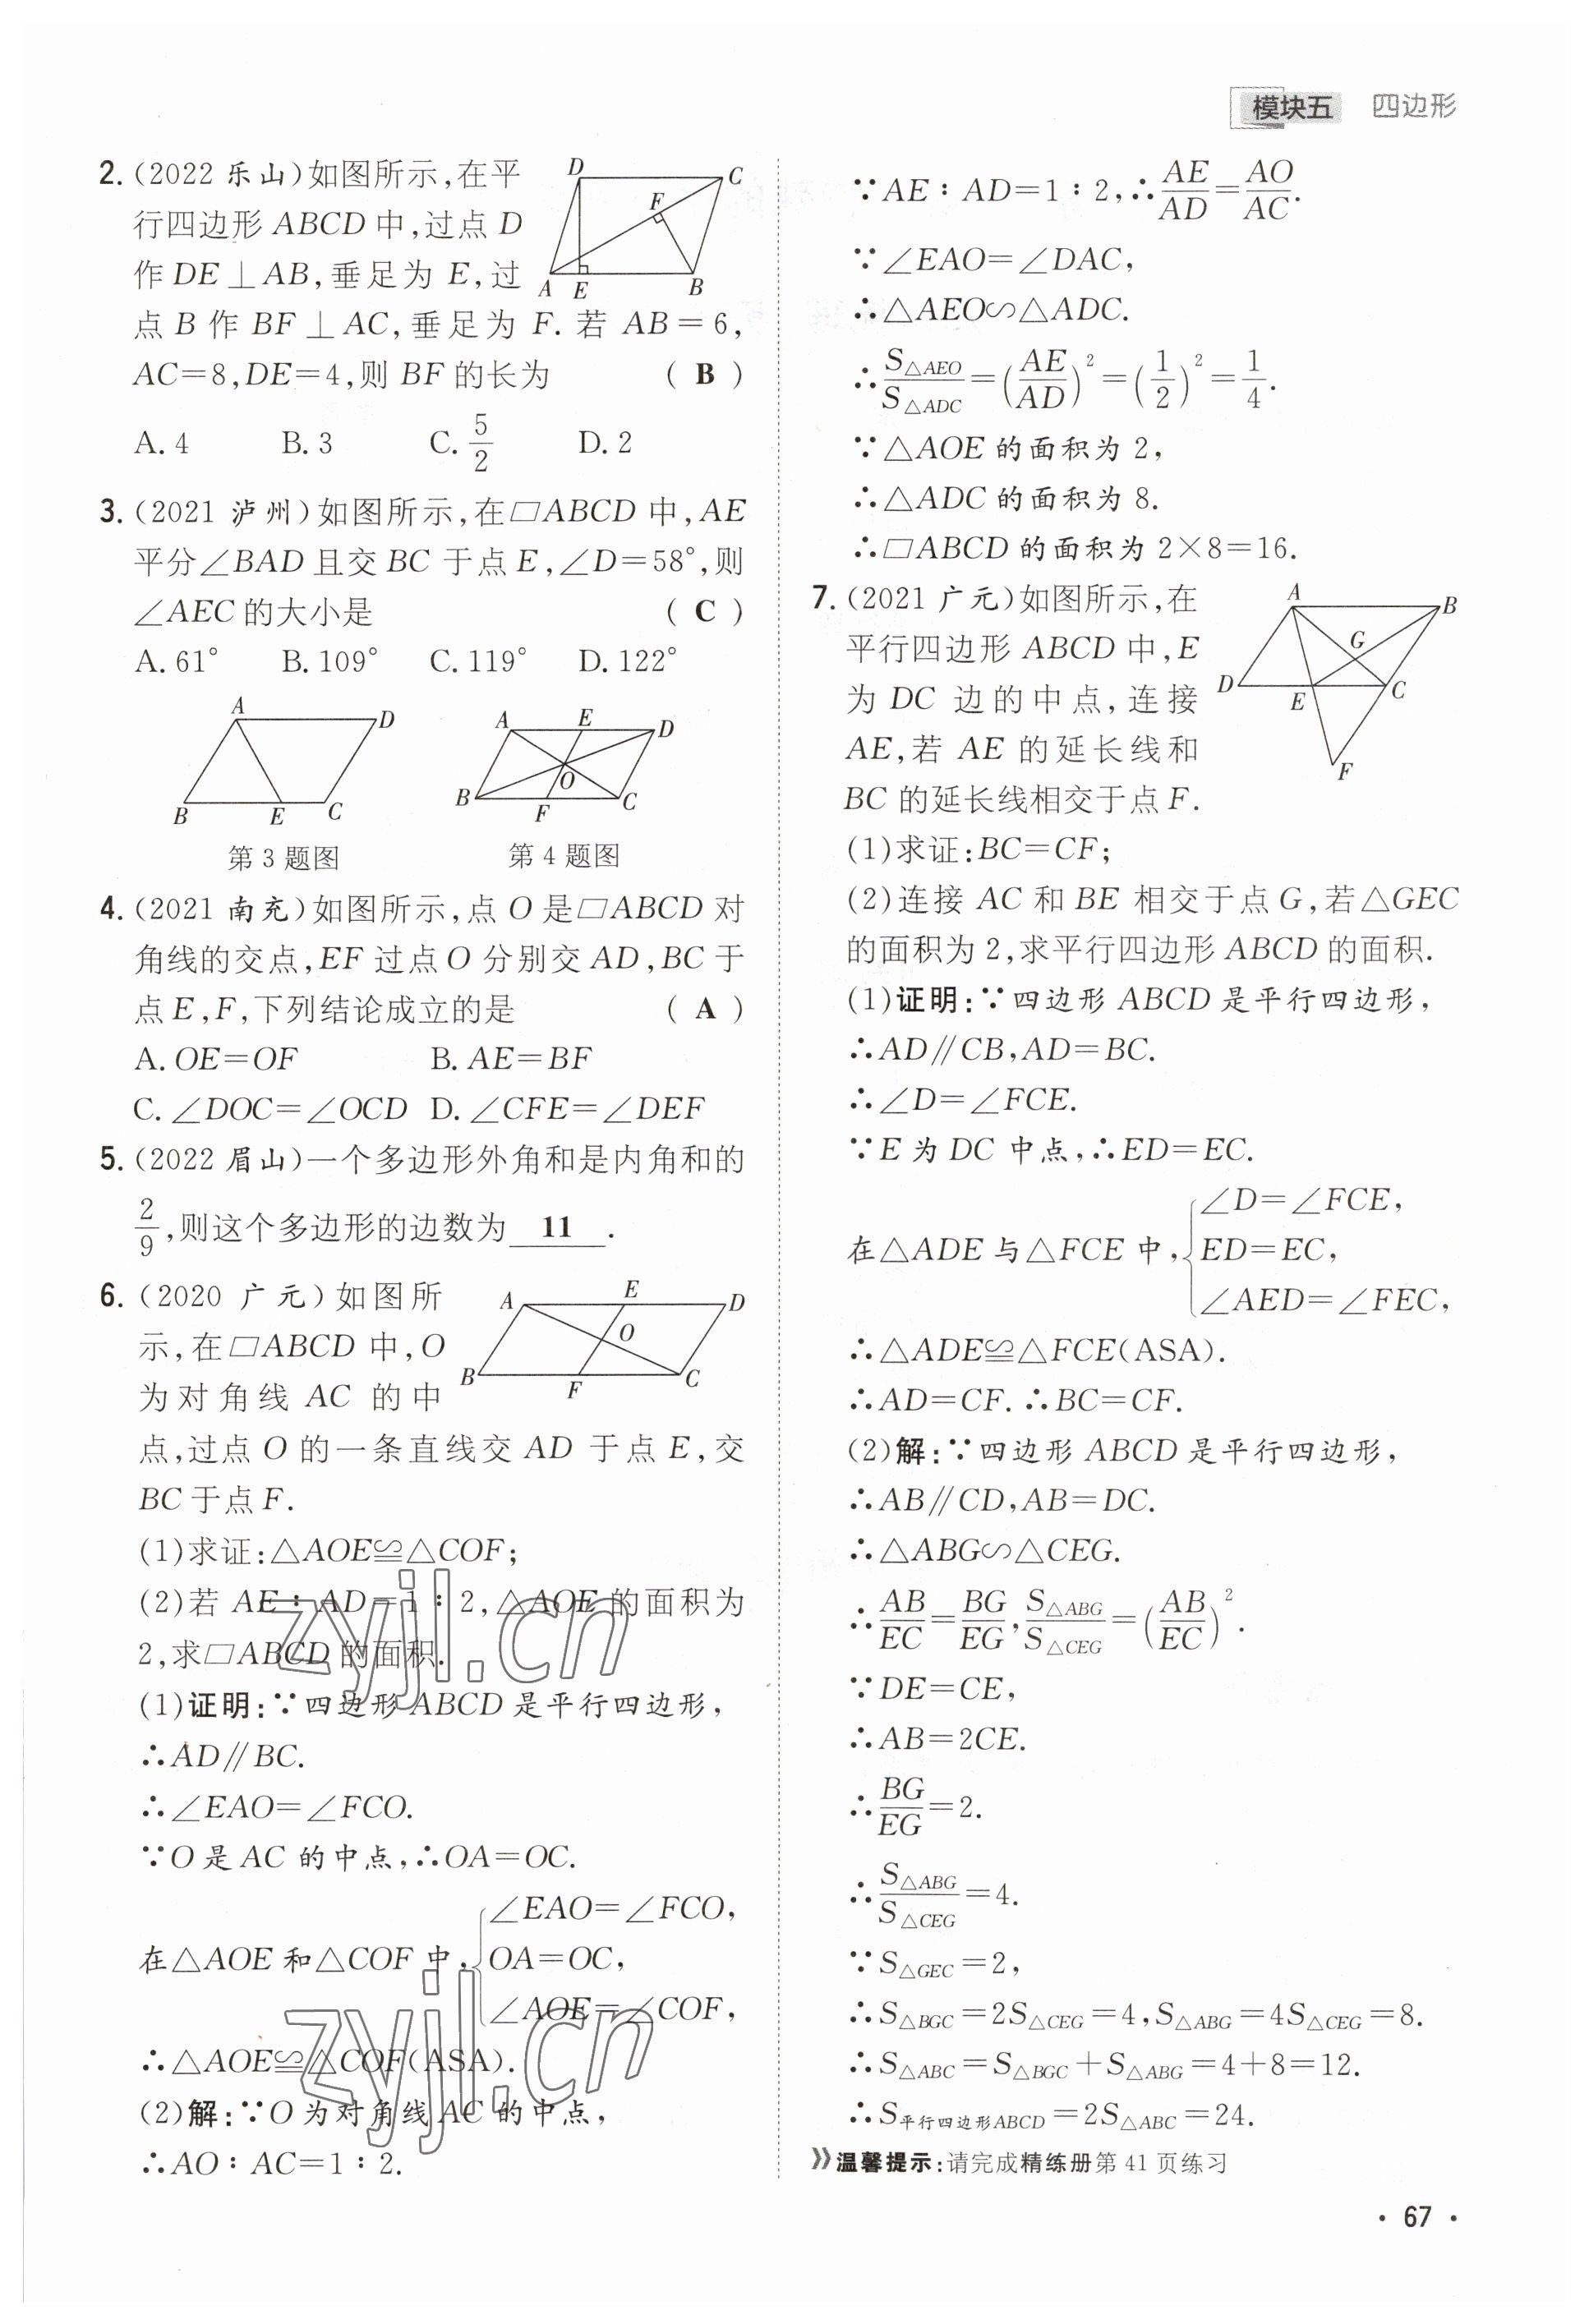 模块五 四边形
2.(2022 乐山)如图所示,在平
行四边形 ABCD 中,过点 D
作 DE⊥AB,垂足为 E,过
点 B 作 BF⊥AC,垂足为 F. 若 AB=6,
AC=8,DE=4,则 BF 的长为 ( B )
A. 4 B. 3 C. 5/2 D. 2
D C F A E B
3.(2021 泸州)如图所示,在▱ABCD 中,AE
平分∠BAD 且交 BC 于点 E,∠D=58°,则
∠AEC 的大小是 ( C )
A. 61° B. 109° C. 119° D. 122°
A D B E C
第 3 题图
A E D O B F C
第 4 题图
4.(2021 南充)如图所示,点 O 是▱ABCD 对
角线的交点,EF 过点 O 分别交 AD,BC 于
点 E,F,下列结论成立的是 ( A )
A. OE=OF B. AE=BF
C. ∠DOC=∠OCD D. ∠CFE=∠DEF
5.(2022 眉山)一个多边形外角和是内角和的
2/9,则这个多边形的边数为 11 .
6.(2020 广元)如图所
示,在▱ABCD 中,O
为对角线 AC 的中
点,过点 O 的一条直线交 AD 于点 E,交
BC 于点 F.
A E D O B F C
(1)求证:△AOE≌△COF;
(2)若 AE∶AD=1∶2,△AOE 的面积为
2,求▱ABCD 的面积.
(1)证明:∵四边形 ABCD 是平行四边形,
∴AD∥BC.
∴∠EAO=∠FCO.
∵O 是 AC 的中点,∴OA=OC.
在△AOE 和△COF 中,{∠EAO=∠FCO,
OA=OC,
∠AOE=∠COF,
∴△AOE≌△COF(ASA).
(2)解:∵O 为对角线 AC 的中点,
∴AO∶AC=1∶2.
∵AE∶AD=1∶2,∴AE/AD=AO/AC.
∵∠EAO=∠DAC,
∴△AEO∽△ADC.
∴S△AEO/S△ADC=(AE/AD)²=(1/2)²=1/4.
∵△AOE 的面积为 2,
∴△ADC 的面积为 8.
∴▱ABCD 的面积为 2×8=16.
7.(2021 广元)如图所示,在
平行四边形 ABCD 中,E
为 DC 边的中点,连接
AE,若 AE 的延长线和
BC 的延长线相交于点 F.
A B G D E C F
(1)求证:BC=CF;
(2)连接 AC 和 BE 相交于点 G,若△GEC
的面积为 2,求平行四边形 ABCD 的面积.
(1)证明:∵四边形 ABCD 是平行四边形,
∴AD∥CB,AD=BC.
∴∠D=∠FCE.
∵E 为 DC 中点,∴ED=EC.
在△ADE 与△FCE 中,{∠D=∠FCE,
ED=EC,
∠AED=∠FEC,
∴△ADE≌△FCE(ASA).
∴AD=CF. ∴BC=CF.
(2)解:∵四边形 ABCD 是平行四边形,
∴AB∥CD,AB=DC.
∴△ABG∽△CEG.
∴AB/EC=BG/EG,S△ABG/S△CEG=(AB/EC)².
∵DE=CE,
∴AB=2CE.
∴BG/EG=2.
∴S△ABG/S△CEG=4.
∵S△GEC=2,
∴S△BGC=2S△CEG=4,S△ABG=4S△CEG=8.
∴S△ABC=S△BGC+S△ABG=4+8=12.
∴S平行四边形ABCD=2S△ABC=24.
》温馨提示:请完成精练册第 41 页练习
· 67 ·
zyjl.cn
zyjl.cn